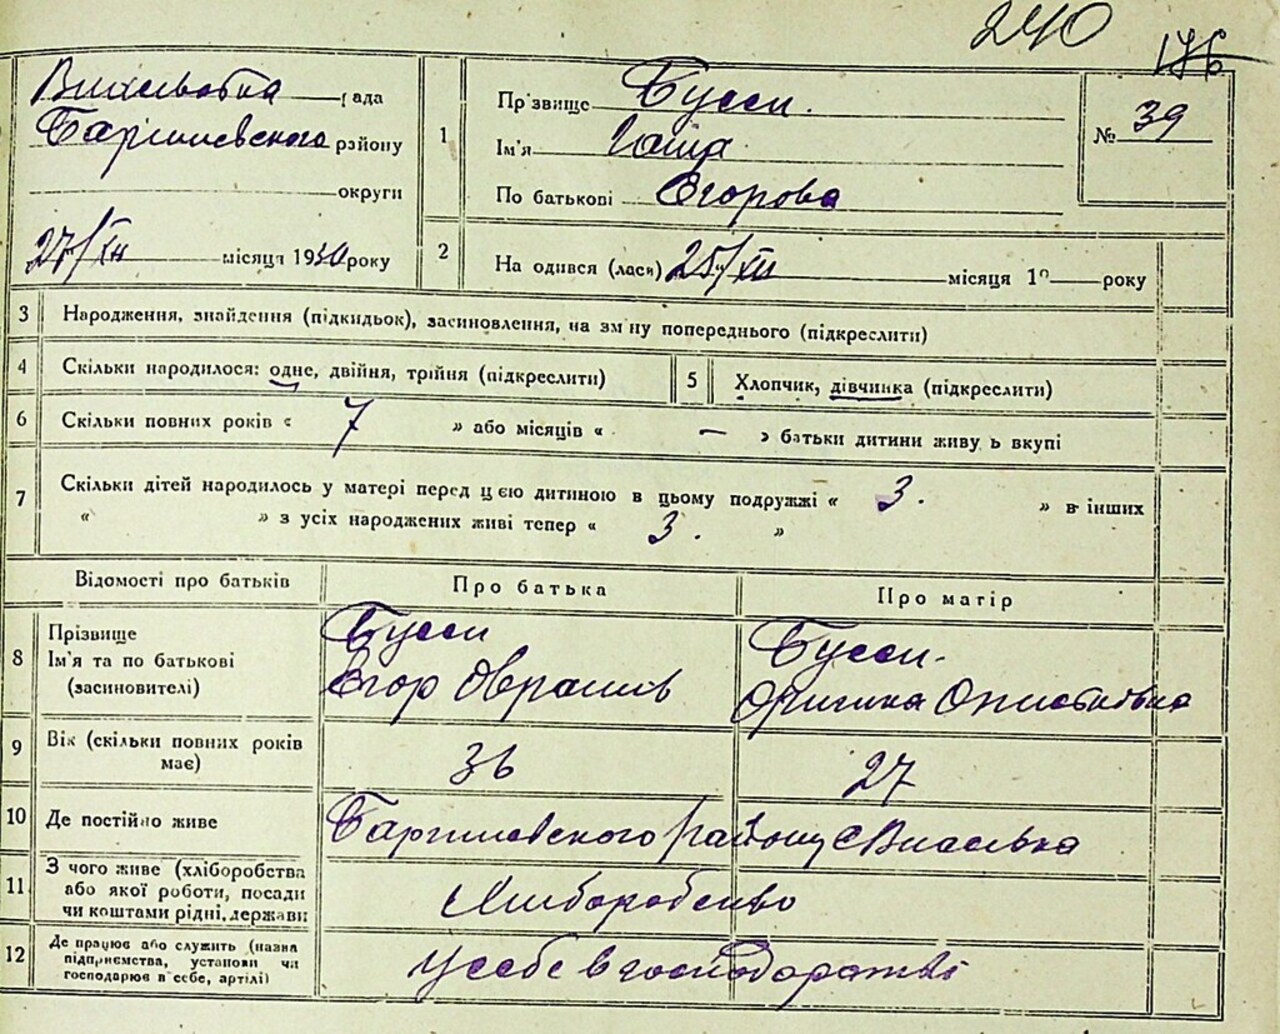 240
176
рада
району
округи
27/XII місяця 1930 року
1
Прізвище Бусси.
Ім'я
По батькові Егорова
№ 39
2
На одився (лася) 25/XII місяця 1 року
3 Народження, знайдення (підкидьок), засиновлення, на зм ну попереднього (підкреслити)
4 Скільки народилося: одне, двійня, трійня (підкреслити)
5 Хлопчик, дівчинка (підкреслити)
6 Скільки повних років « 7 » або місяців « — » батьки дитини живу ь вкупі
7 Скільки дітей народилось у матері перед цією дитиною в цьому подружжі « 3. » в інших
« » з усіх народжених живі тепер « 3. »
Відомості про батьків
Про батька
Про матір
8
Прізвище
Ім'я та по батькові
(засиновителі)
Бусси
Егор
Бусси.
9
Вік (скільки повних років
має)
36
27
10 Де постійно живе
району с
11
З чого живе (хліборобства
або якої роботи, посади
чи коштами рідні, держави
Хліборобство
12
Де працює або служить (назва
підприємства, установи чи
господарює в себе, артілі)
у себе в господарстві